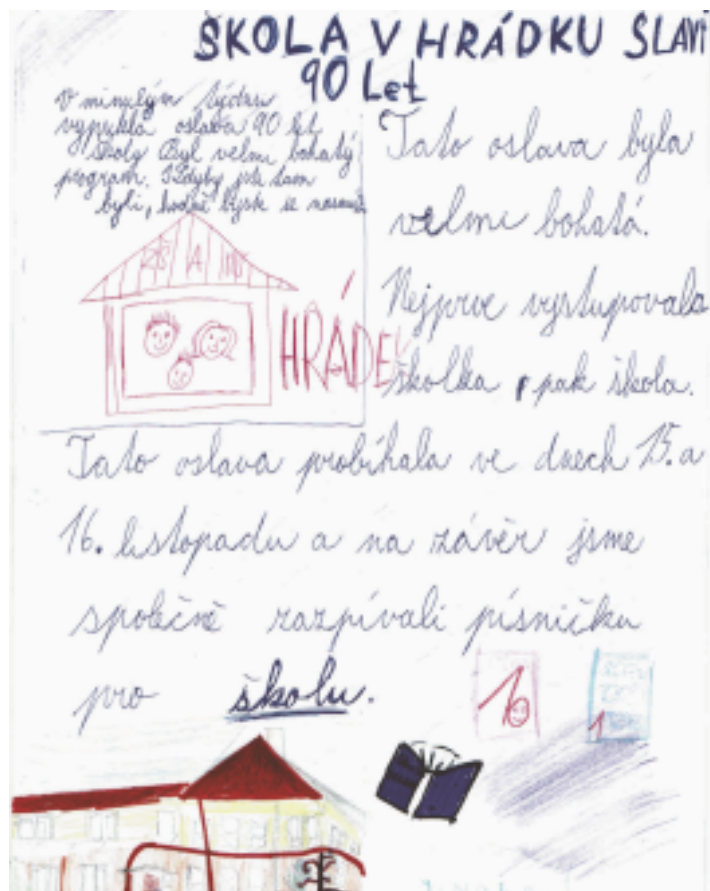 ŠKOLA V HRÁDKU SLAVÍ
90 Let
V minulým týdnu
vypukla oslava 90 let
školy Byl velmi bohatý
program. Kdyby jste tam
byli, hodně byste se nasmáli
ZŠ A MŠ
HRÁDEK
Tato oslava byla
velmi bohatá.
Nejprve vystupovala
školka, pak škola.
Tato oslava probíhala ve dnech 15. a
16. listopadu a na závěr jsme
společně zazpívali písničku
pro školu.
1
1